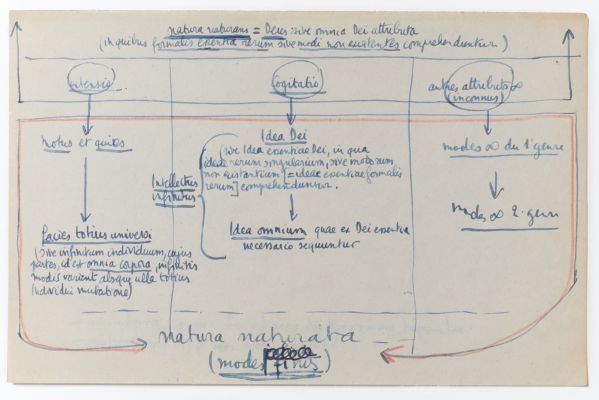 natura naturans = Deus sive omnia Dei attributa
(in quibus formalis essentia rerum sive modi non existentes comprehenduntur)
extensio
cogitatio
autres attributs ∞
(inconnus)
motus et quies
Idea Dei
(sive Idea essentiae Dei, in qua
ideae rerum singularium, sive modorum
non existentium [= ideae essentiae formalis
rerum] comprehenduntur.
modes ∞ du 1er genre
Intellectus
infinitus
modes ∞ 2e genre
facies totius universi
(sive infinitum individuum, cujus
partes, id est omnia corpora, infinitis
modis variant absque ulla totius
Individui mutatione)
Idea omnium quae ex Dei essentia
necessario sequuntur
natura naturata
(modes finis)